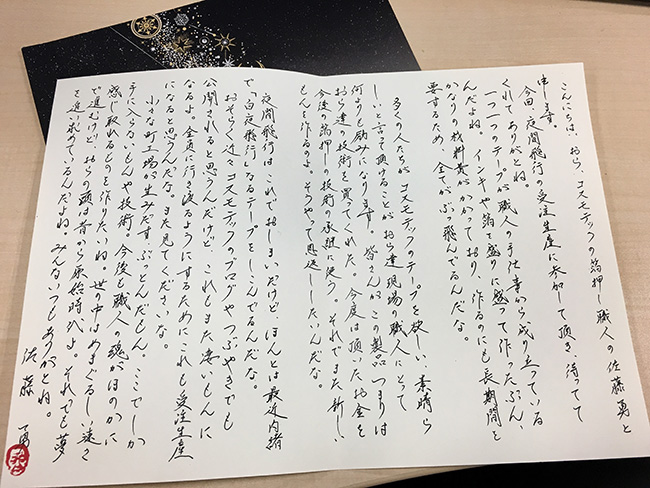 こんにちは、おら、コスモテックの箔押し職人の佐藤勇と
申します。
今回、夜間飛行の受注生産に参加して頂き、待ってて
くれてありがとね。
一つ一つのテープが職人の手仕事から成り立っている
んだよね。インキや箔を盛りに盛って作ったぶん、
かなりの材料費がかかっており、作るのにも長期間を
要するため、全てがぶっ飛んでるんだな。
多くの人たちが、コスモテックのテープを欲しい、素晴ら
しいと言って頂けることがおら達現場の職人にとって
何よりも励みになります。皆さんがこの製品、つまりは
おら達の技術を買ってくれた。今度は頂いたお金を
今後の箔押しの技術の承継に使う。それでまた新しい
もんを作るのよ。そうやって恩返ししたいんだな。
夜間飛行はこれでおしまいだけど、ほんとは最近内緒
で「白夜飛行」なるテープをしこんでるんだな。
おそらく近々コスモテックのブログやつぶやきでも
公開されると思うんだけど、これもまた凄いもんに
なるよ。全員に行き渡るようにするためにこれも受注生産
になると思うんだな。また見てくださいな。
小さな町工場が生みだす、ぶっとんだもん。ここでしか
手に入らないもんや技術。今後も職人の魂がほのかに
感じ取れるものを作りたいね。世の中はめまぐるしい速さ
で進むけど、おらの頭は昔から原始時代よ。それでも夢
を追い求めているんだよね。みんないつもありがとね。
佐藤 勇